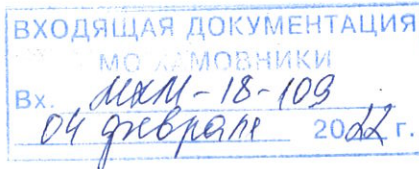 ВХОДЯЩАЯ ДОКУМЕНТАЦИЯ
МО ХАМОВНИКИ
Вх. МХМ-18-109
04 февраля 2022 г.